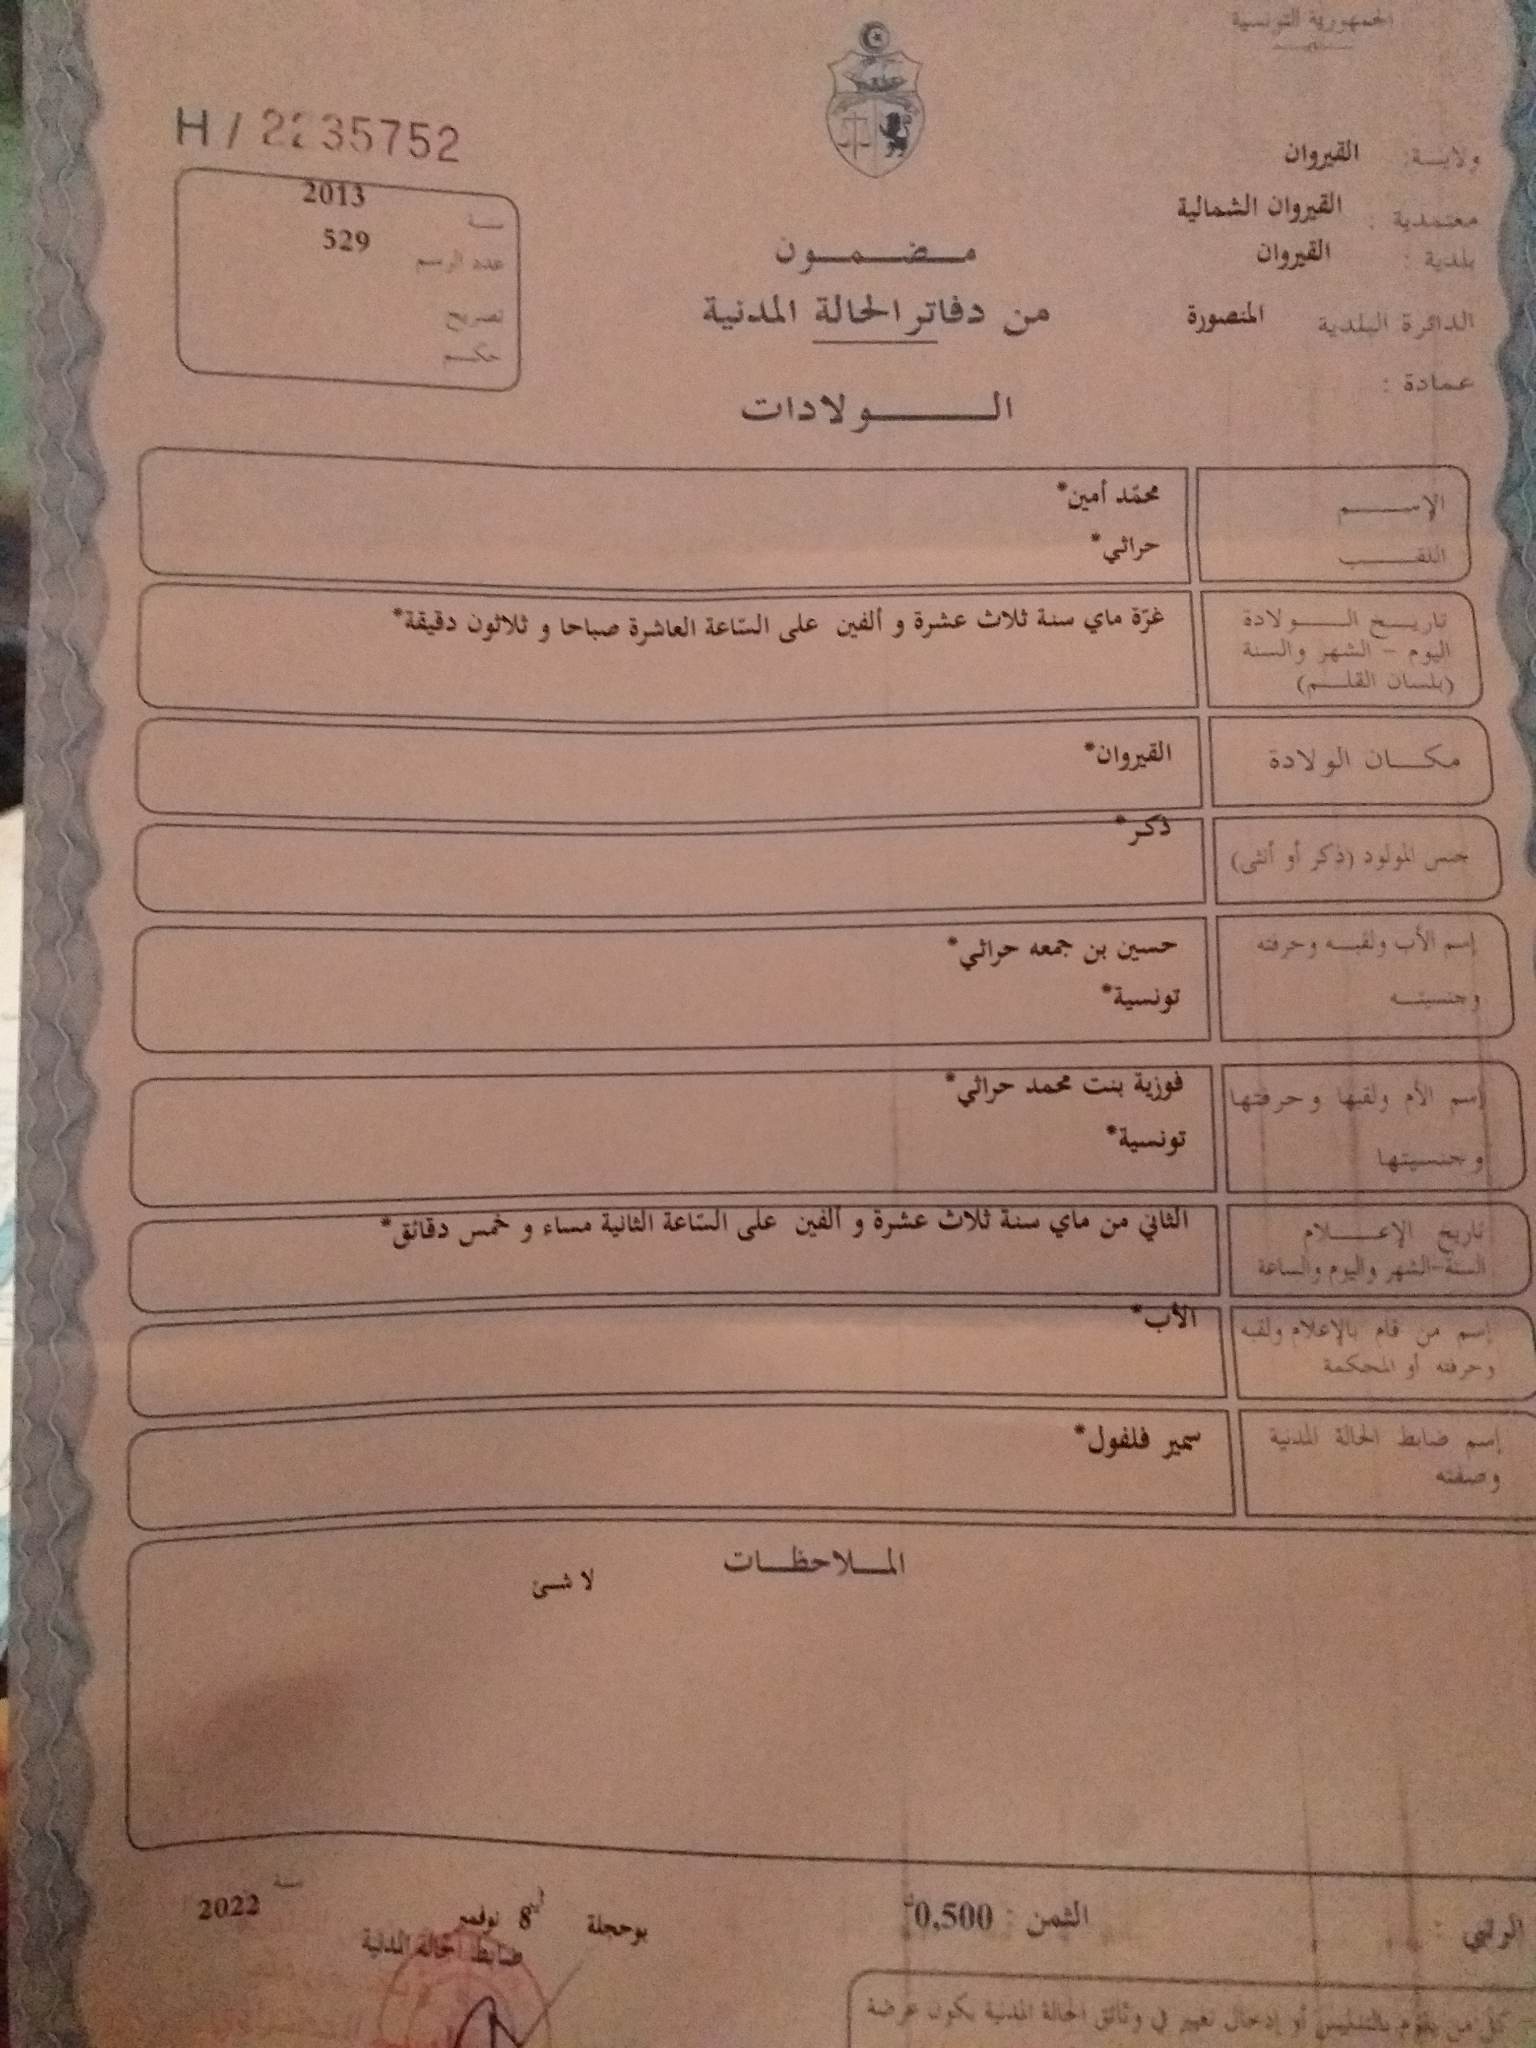 الجمهورية التونسية
H / 2235752
ولاية: القيروان
معتمدية : القيروان الشمالية
بلدية : القيروان
الدائرة البلدية المنصورة
عمادة :
سنة 2013
عدد الرسم 529
تصريح
حكم
مضمون
من دفاتر الحالة المدنية
الولادات
الإسم محمّد أمين*
اللقب حراثي*
تاريخ الولادة غرّة ماي سنة ثلاث عشرة و ألفين على السّاعة العاشرة صباحا و ثلاثون دقيقة*
اليوم - الشهر والسنة
(بلسان القلم)
مكان الولادة القيروان*
جنس المولود (ذكر أو أنثى) ذكر*
إسم الأب ولقبه وحرفته حسين بن جمعه حراثي*
وجنسيته تونسية*
إسم الأم ولقبها وحرفتها فوزية بنت محمد حراثي*
وجنسيتها تونسية*
تاريخ الإعلام الثاني من ماي سنة ثلاث عشرة و ألفين على السّاعة الثانية مساء و خمس دقائق*
السنة-الشهر واليوم والساعة
إسم من قام بالإعلام ولقبه الأب*
وحرفته أو المحكمة
إسم ضابط الحالة المدنية سمير فلفول*
وصفته
الملاحظات
لا شئ
الثمن : 0,500
بوحجلة 8 نوفمبر سنة 2022
ضابط الحالة المدنية
كل من يقوم بالتدليس أو إدخال تغيير في وثائق الحالة المدنية يكون عرضة